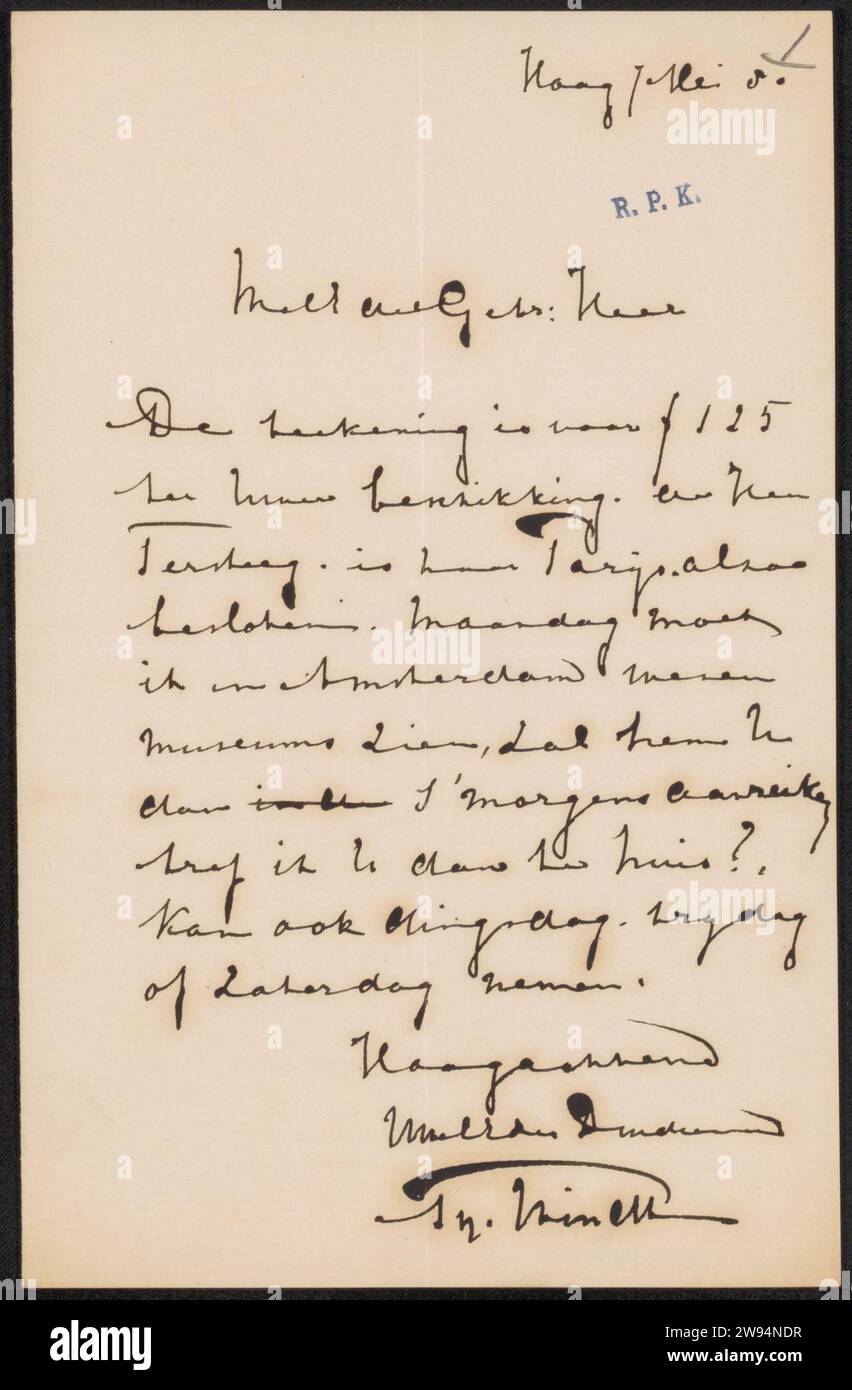 Haag 7 Mei 8.
R. P. K.
WelEdelGebr: Heer
De teekening is voor f 125
ter Uwer beschikking. de Heer
Tersteeg. is naar Parijs. alzoo
besloten. Maandag moet
ik in Amsterdam wezen
museums zien, zal hem U
dan S'morgens aanreiken
tref ik U dan te huis?.
Kan ook dingsdag. vrydag
of Zaterdag nemen.
Hoogachtend
UwelEdes Dndienend
alamy
Image ID: 2W94NDR
www.alamy.com